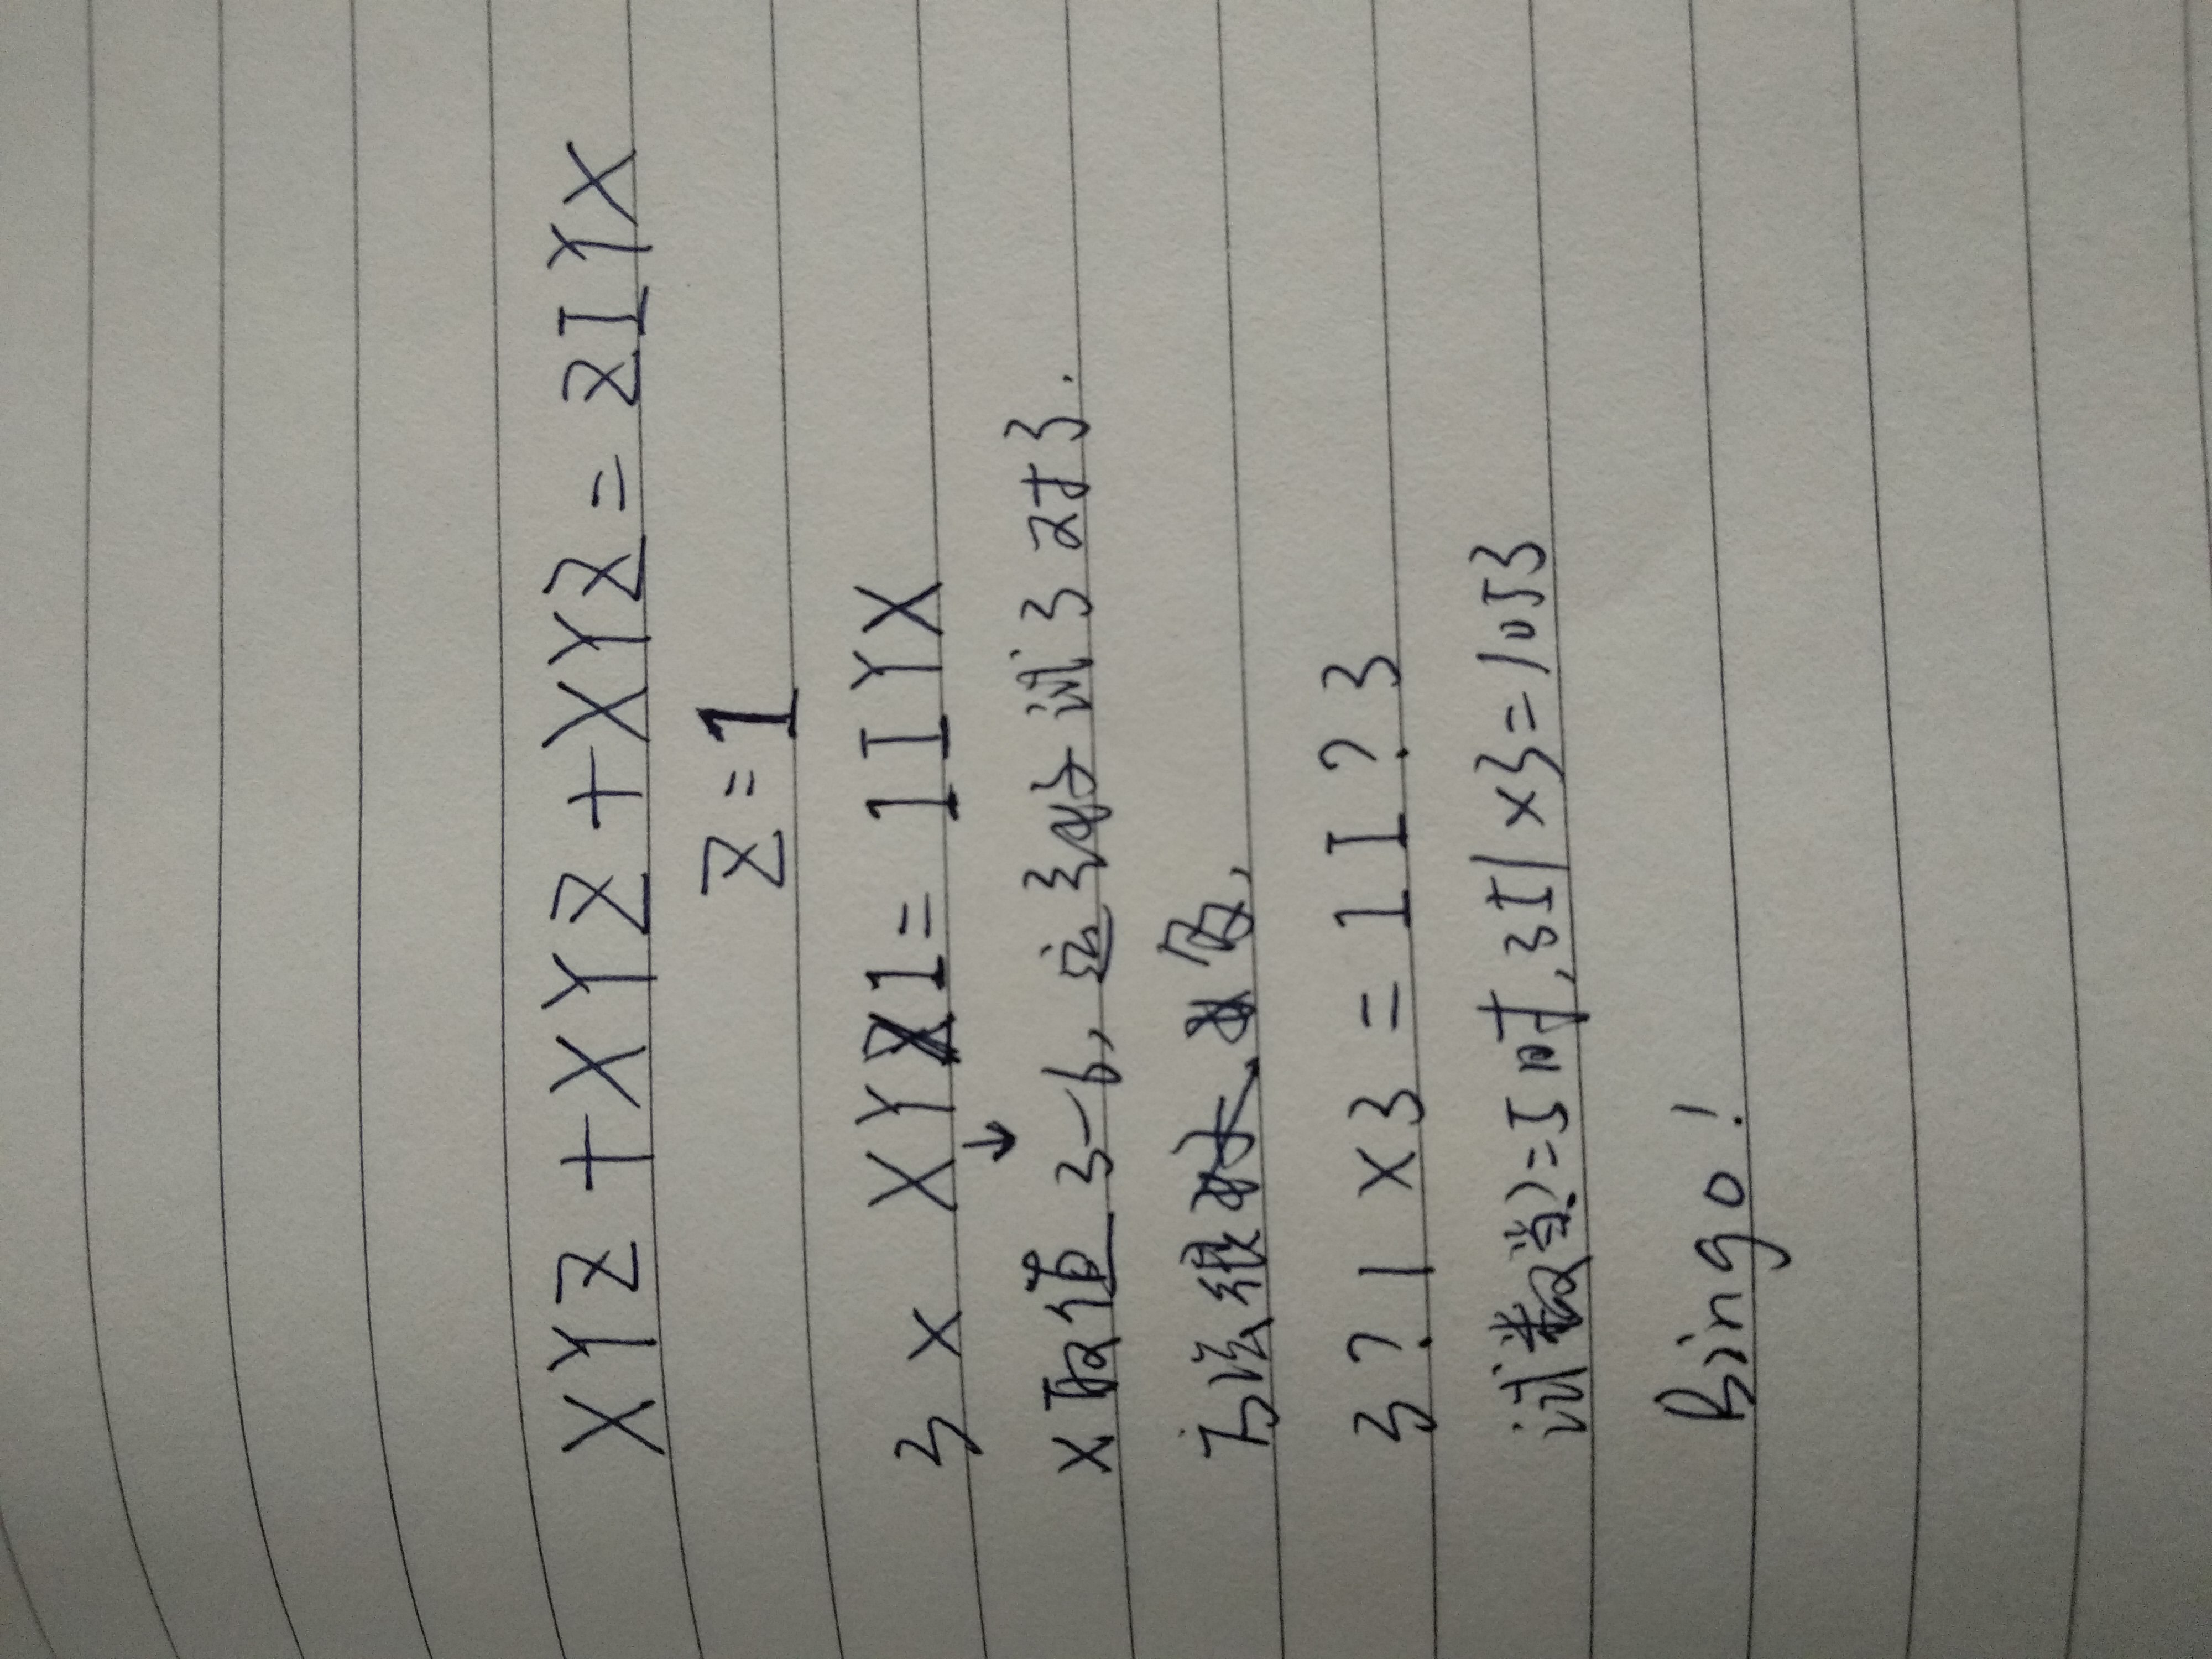 XYZ + XYZ + XYZ = ZIYX
Z = 1
3 × XY1 = 1IYX
X取值 3-6, 运3好试3对3.
3?1 × 3 = 1I?3
试数当?=5时, 351×3=1053
Bingo!